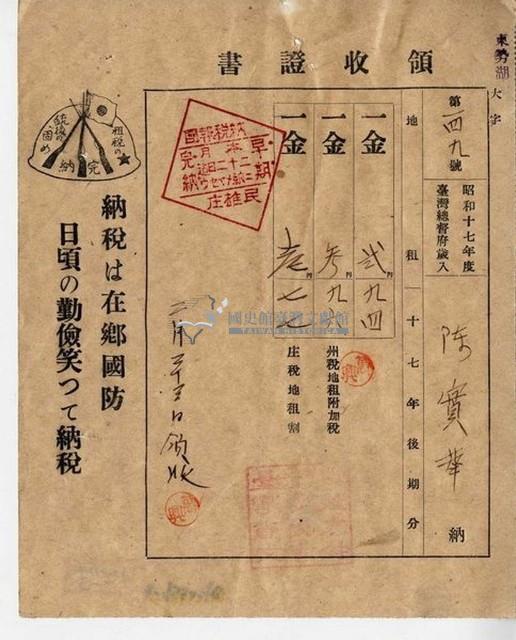 領收證書
東勢湖
大字
第一四九號
昭和十七年度
臺灣總督府歲入
陳實華 納
地租 十七年後期分
一金 弐円九四
一金 参円九
州稅地租附加稅
一金 壱円七七
庄稅地租割
二月 日領收
早期
完納
民雄庄
租稅の完納
銃後の固め
納稅は在鄉國防
日頃の勤儉笑つて納稅
國史館臺灣文獻館
TAIWAN HISTORICA